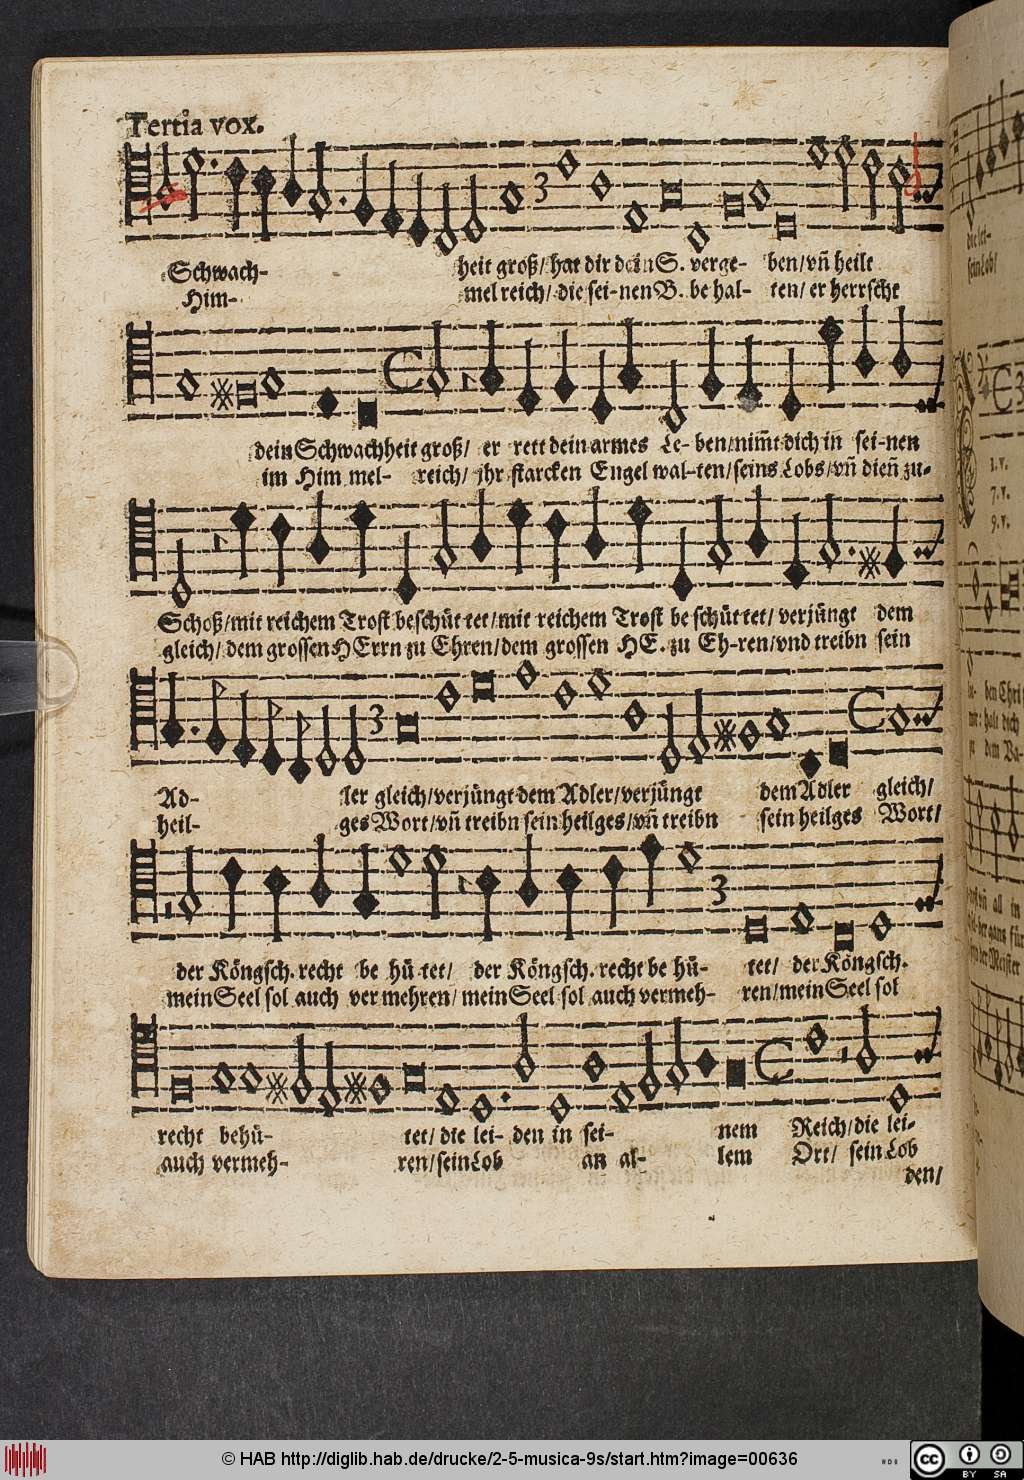 Tertia vox.
3
Schwach- heit groß/ hat dir dein S. verge- ben/ vñ heilt
Him- mel reich/ die sei-nen B. be hal- ten/ er herrscht
dein Schwachheit groß/ er rett dein armes Le- ben/ nim̃t dich in sei-nen
im Him mel- reich/ jhr starcken Engel wal-ten/ seins Lobs/ vñ dieñ zu-
Schoß/ mit reichem Trost beschüt tet/ mit reichem Trost be schüt tet/ verjüngt dem
gleich/ dem grossen HErrn zu Ehren/ dem grossen HE. zu Eh-ren/ vnd treibn sein
3
Ad- ler gleich/ verjüngt dem Adler/ verjüngt dem Adler gleich/
heil- ges Wort/ vñ treibn sein heilges/ vñ treibn sein heilges Wort/
3
der Köngsch. recht be hü-tet/ der Köngsch. recht be hü- tet/ der Köngsch.
mein Seel sol auch ver mehren/ mein Seel sol auch vermeh- ren/ mein Seel sol
recht behü- tet/ die lei- den in sei- nem Reich/ die lei-
auch vermeh- ren/ sein Lob an al- lem Ort/ sein Lob
den/
die lei-
sein Lob/
3
1. v.
7. v.
9. v.
ben Chri
halt dich
dem Va-
all in
gans für
der Meister
© HAB http://diglib.hab.de/drucke/2-5-musica-9s/start.htm?image=00636
HAB
cc
BY SA